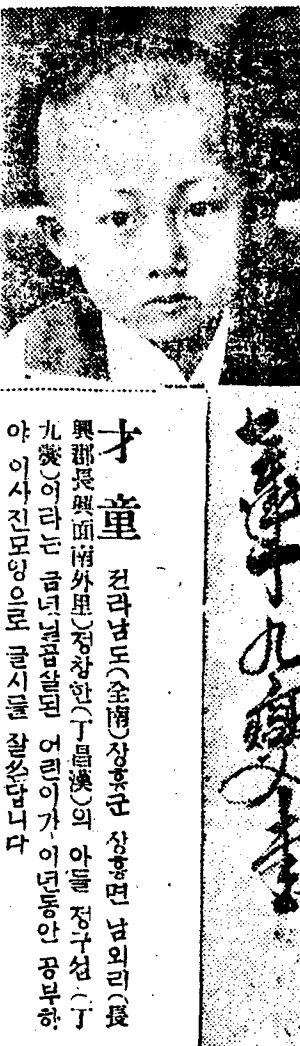 才童
전라남도(全南)장흥군 장흥면 남외리(長
興郡長興面南外里)정창한(丁昌漢)의 아들 정구섭(丁
九燮)이라는 금년닐곱살된 어린이가 이년동안 공부하
야 이사진모양으로 글시를 잘쓴답니다